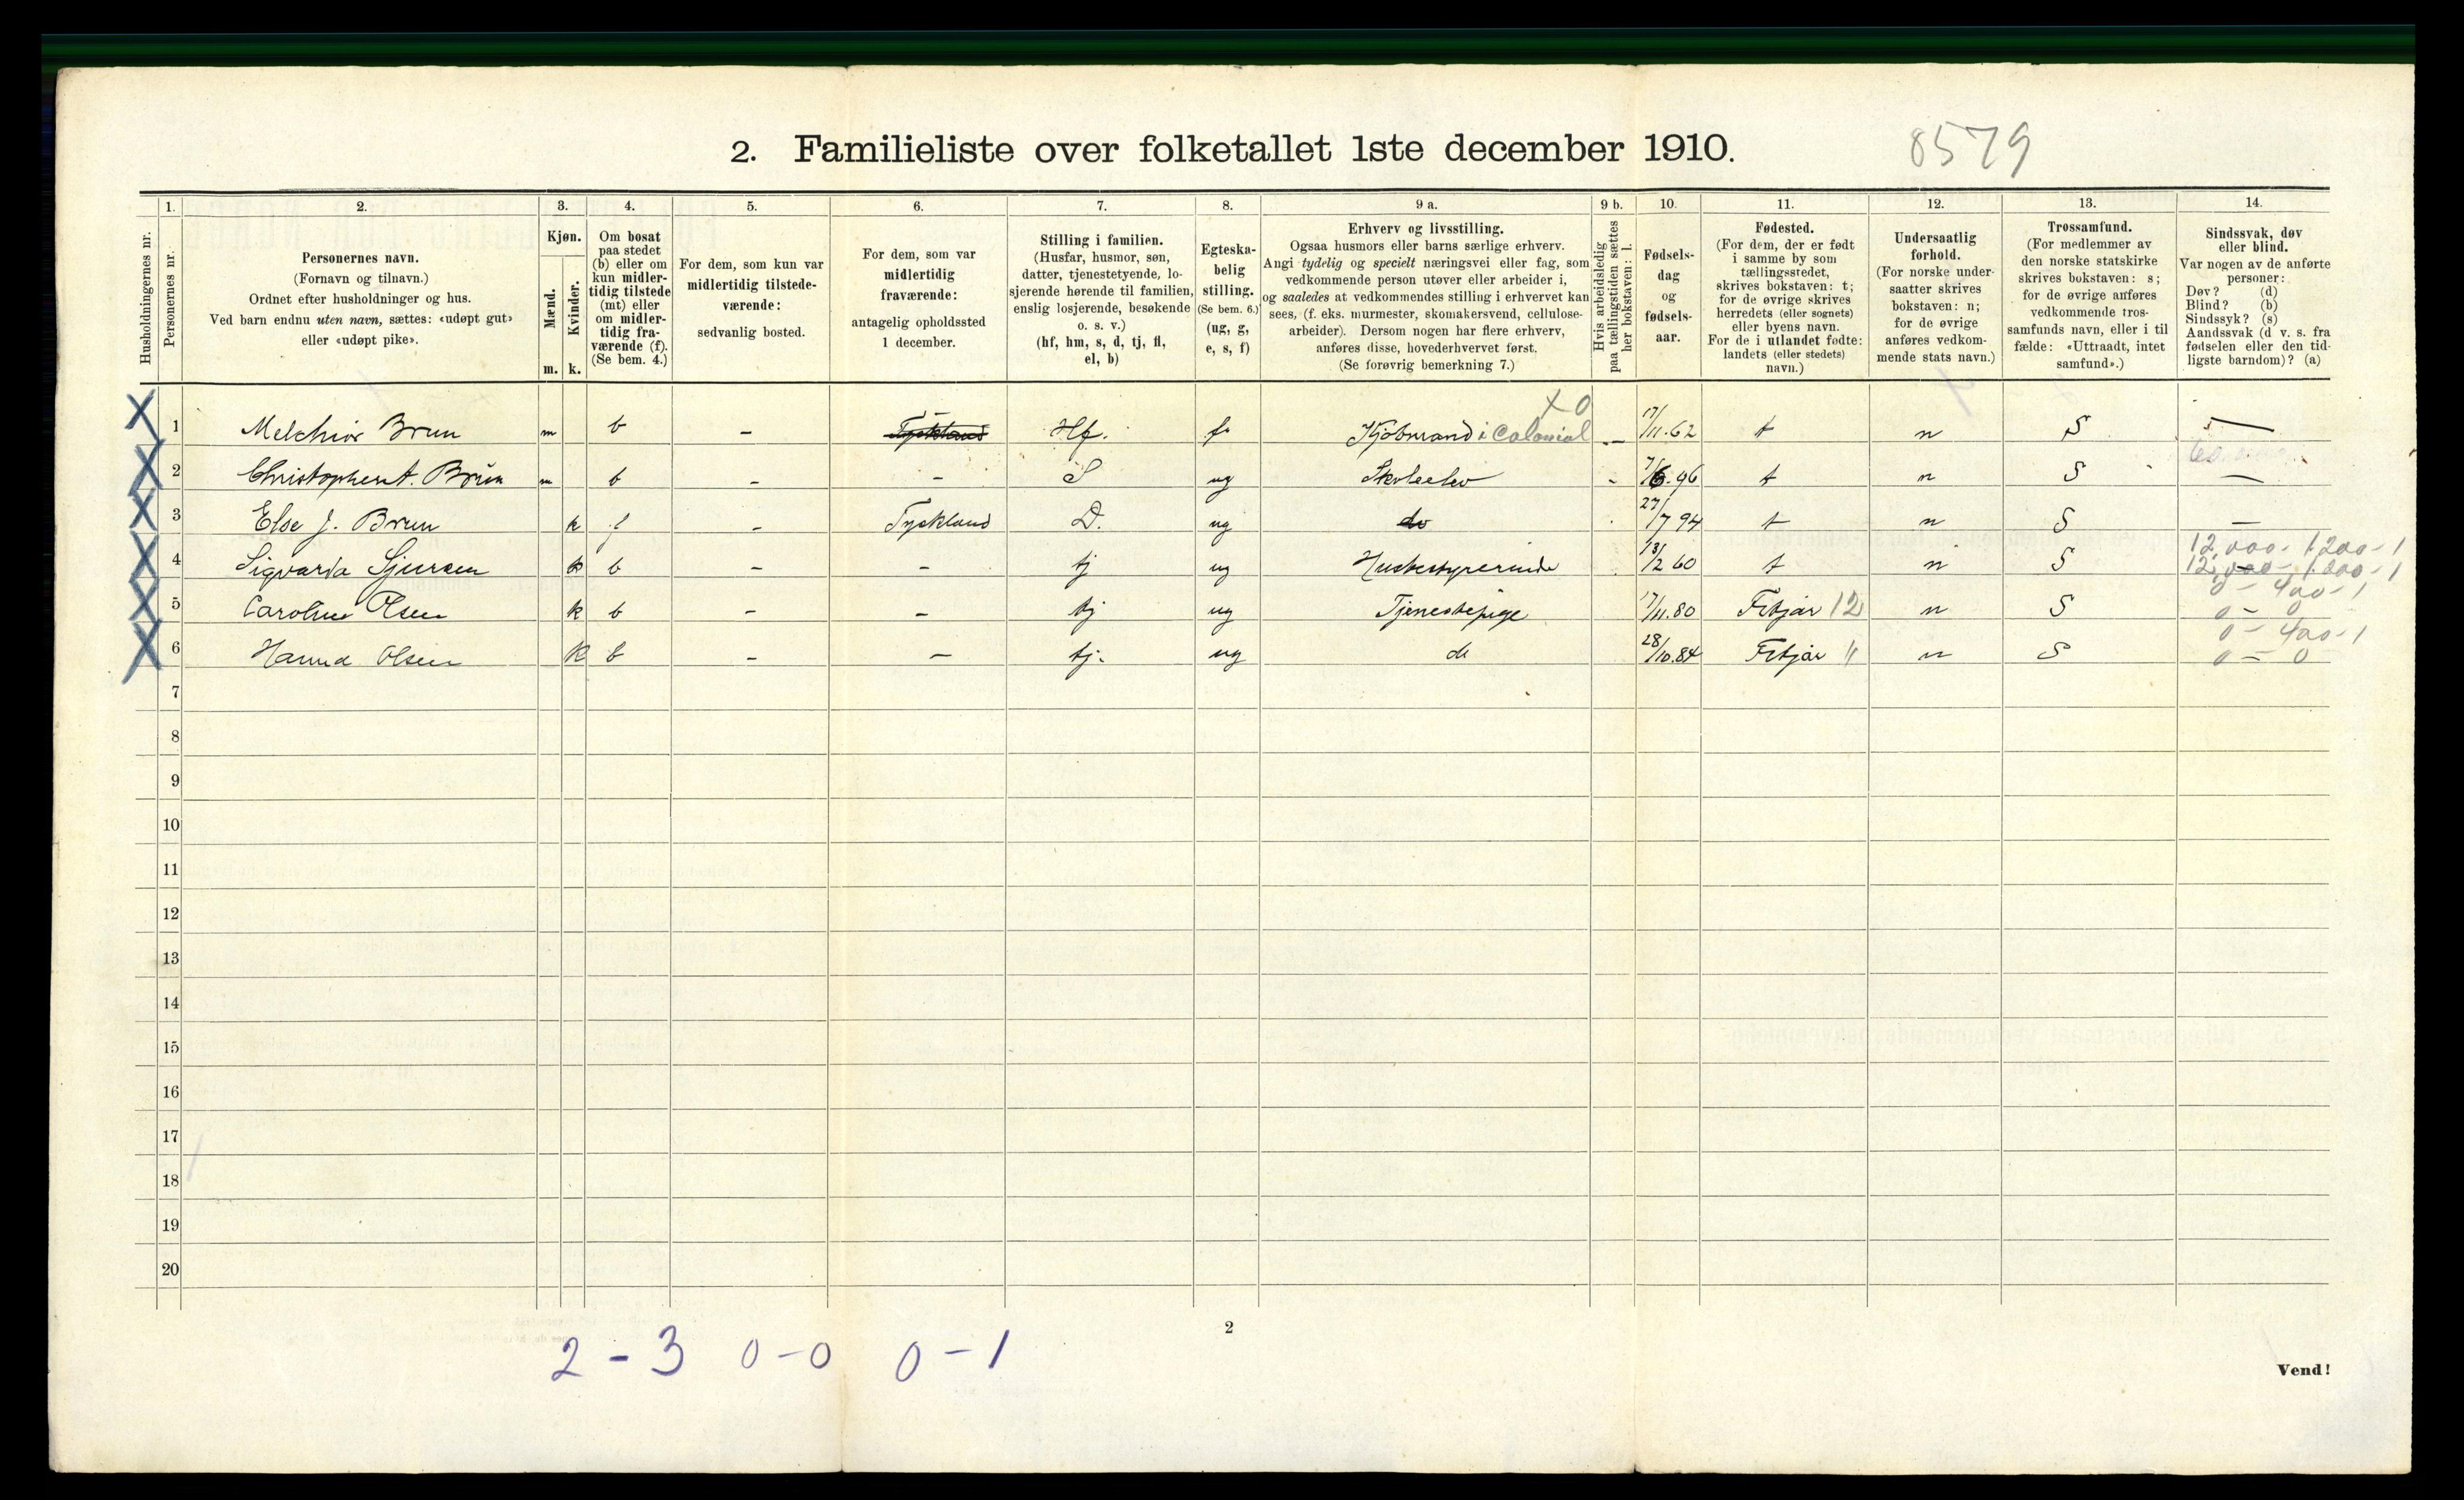 2. Familieliste over folketallet 1ste december 1910.
8579
Husholdningernes nr.
1.
Personernes nr.
2.
Personernes navn.
(Fornavn og tilnavn.)
Ordnet efter husholdninger og hus.
Ved barn endnu uten navn, sættes: «udøpt gut»
eller «udøpt pike».
3.
Kjøn.
Mænd.
Kvinder.
m. k.
4.
Om bosat
paa stedet
(b) eller om
kun midler-
tidig tilstede
(mt) eller
om midler-
tidig fra-
værende (f).
(Se bem. 4.)
5.
For dem, som kun var
midlertidig tilstede-
værende:
sedvanlig bosted.
6.
For dem, som var
midlertidig
fraværende:
antagelig opholdssted
1 december.
7.
Stilling i familien.
(Husfar, husmor, søn,
datter, tjenestetyende, lo-
sjerende hørende til familien,
enslig losjerende, besøkende
o. s. v.)
(hf, hm, s, d, tj, fl,
el, b)
8.
Egteska-
belig
stilling.
(Se bem. 6.)
(ug, g,
e, s, f)
9 a.
Erhverv og livsstilling.
Ogsaa husmors eller barns særlige erhverv.
Angi tydelig og specielt næringsvei eller fag, som
vedkommende person utøver eller arbeider i,
og saaledes at vedkommendes stilling i erhvervet kan
sees, (f. eks. murmester, skomakersvend, cellulose-
arbeider). Dersom nogen har flere erhverv,
anføres disse, hovederhvervet først.
(Se forøvrig bemerkning 7.)
9 b.
Hvis arbeidsledig
paa tællingstiden sættes
her bokstaven: l.
10.
Fødsels-
dag
og
fødsels-
aar.
11.
Fødested.
(For dem, der er født
i samme by som
tællingsstedet,
skrives bokstaven: t;
for de øvrige skrives
herredets (eller sognets)
eller byens navn.
For de i utlandet fødte:
landets (eller stedets)
navn.)
12.
Undersaatlig
forhold.
(For norske under-
saatter skrives
bokstaven: n;
for de øvrige
anføres vedkom-
mende stats navn.)
13.
Trossamfund.
(For medlemmer av
den norske statskirke
skrives bokstaven: s;
for de øvrige anføres
vedkommende tros-
samfunds navn, eller i til
fælde: «Uttraadt, intet
samfund».)
14.
Sindssvak, døv
eller blind.
Var nogen av de anførte
personer:
Døv? (d)
Blind? (b)
Sindssyk? (s)
Aandssvak (d v. s. fra
fødselen eller den tid-
ligste barndom)? (a)
X 0
X 1 Melchior Brun m b - Tyskland Hf. f. Kjøbmand i Colonial - 17/11.62 t n S —
X 2 Christopher A. Brun m b - - S ug Skoleelev - 7/6.96 t n S —
X 3 Else J. Brun k f - Tyskland D. ug do 27/7 94 t n S —
12,000 - 1200 - 1
X 4 Sigvarda Sjursen k b - - tj ug Husbestyrerinde 13/2 60 t n S 12,000 - 1200 - 1
0 - 400 - 1
X 5 Caroline Olsen k b - - tj ug Tjenestepige 17/11.80 Fitjar 12 n S 0 - 0
0 - 400 - 1
X 6 Hanna Olsen k b - - tj. ug do 28/10.84 Fitjar 11 n S 0 - 0
7
8
9
10
11
12
13
14
15
16
17
18
19
20
2
2 - 3 0 - 0 0 - 1
Vend!